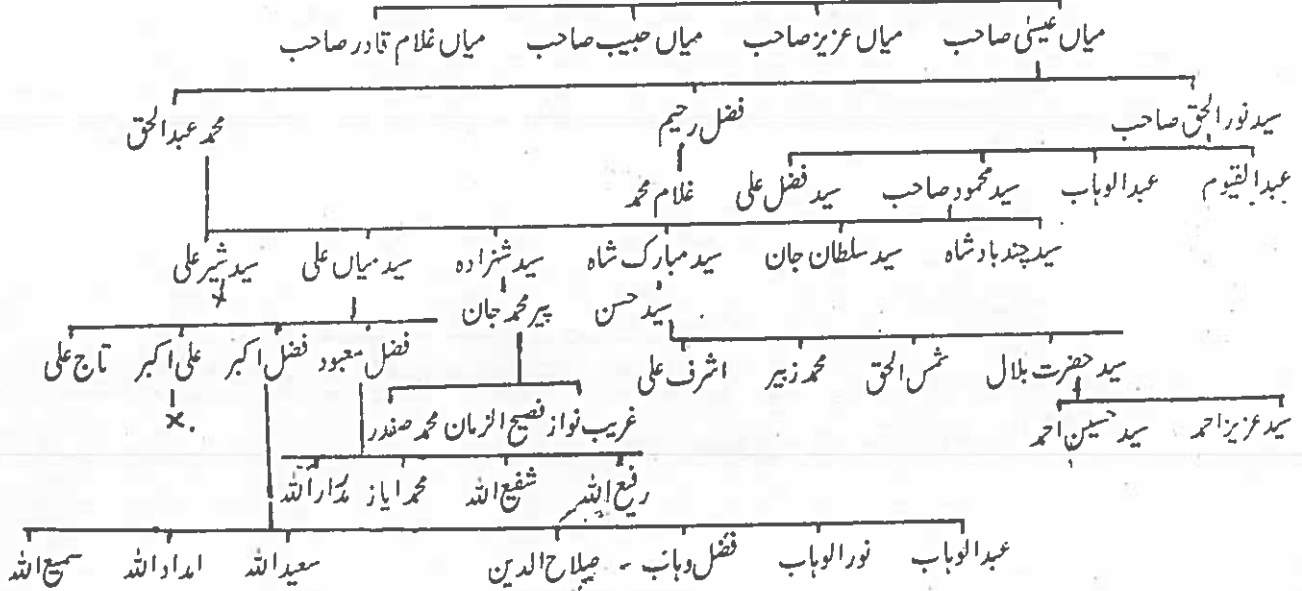 میاں عیسیٰ صاحب میاں عزیز صاحب میاں حبیب صاحب میاں غلام قادر صاحب
سید نور الحق صاحب فضل رحیم محمد عبد الحق
عبد القیوم عبد الوہاب سید محمود صاحب سید فضل علی غلام محمد
سید چند بادشاہ سید سلطان جان سید مبارک شاہ سید شہزادہ سید میاں علی سید شیر علی
سید حسن پیر محمد جان
سید حضرت بلال شمس الحق محمد زبیر اشرف علی فضل معبود فضل اکبر علی اکبر تاج علی
سید عزیز احمد سید حسین احمد غریب نواز فصیح الزمان محمد صفدر
رفیع اللہ شفیع اللہ محمد ایاز مدار اللہ
عبد الوہاب نور الوہاب فضل وہاب - صلاح الدین سعید اللہ امداد اللہ سمیع اللہ